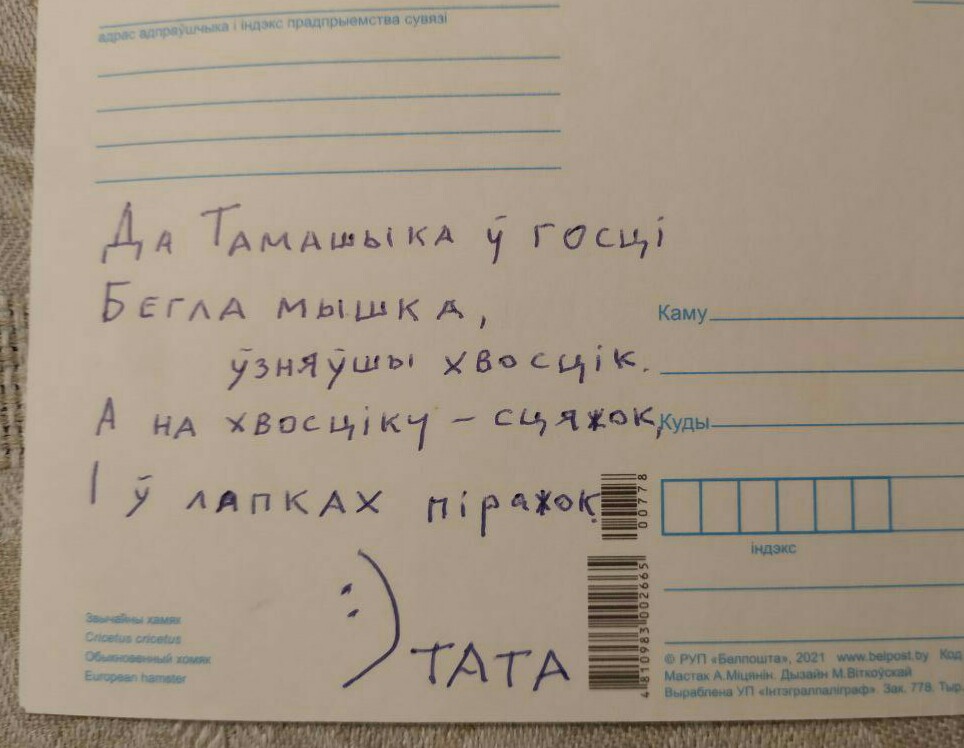 адрас адпраўшчыка і індэкс прадпрыемства сувязі
Да Тамашыка ў госці
Бегла мышка,
ўзняўшы хвосцік.
А на хвосціку – сцяжок,
І ў лапках піражок.
:)
ТАТА
Каму
Куды
00778
індэкс
4810983002665
Звычайны хамяк
Cricetus cricetus
Обыкновенный хомяк
European hamster
© РУП «Белпошта», 2021 www.belpost.by Код
Мастак А.Міцянін. Дызайн М.Віткоўскай
Выраблена УП «Інтэграллаліграф». Зак. 778. Тыр.